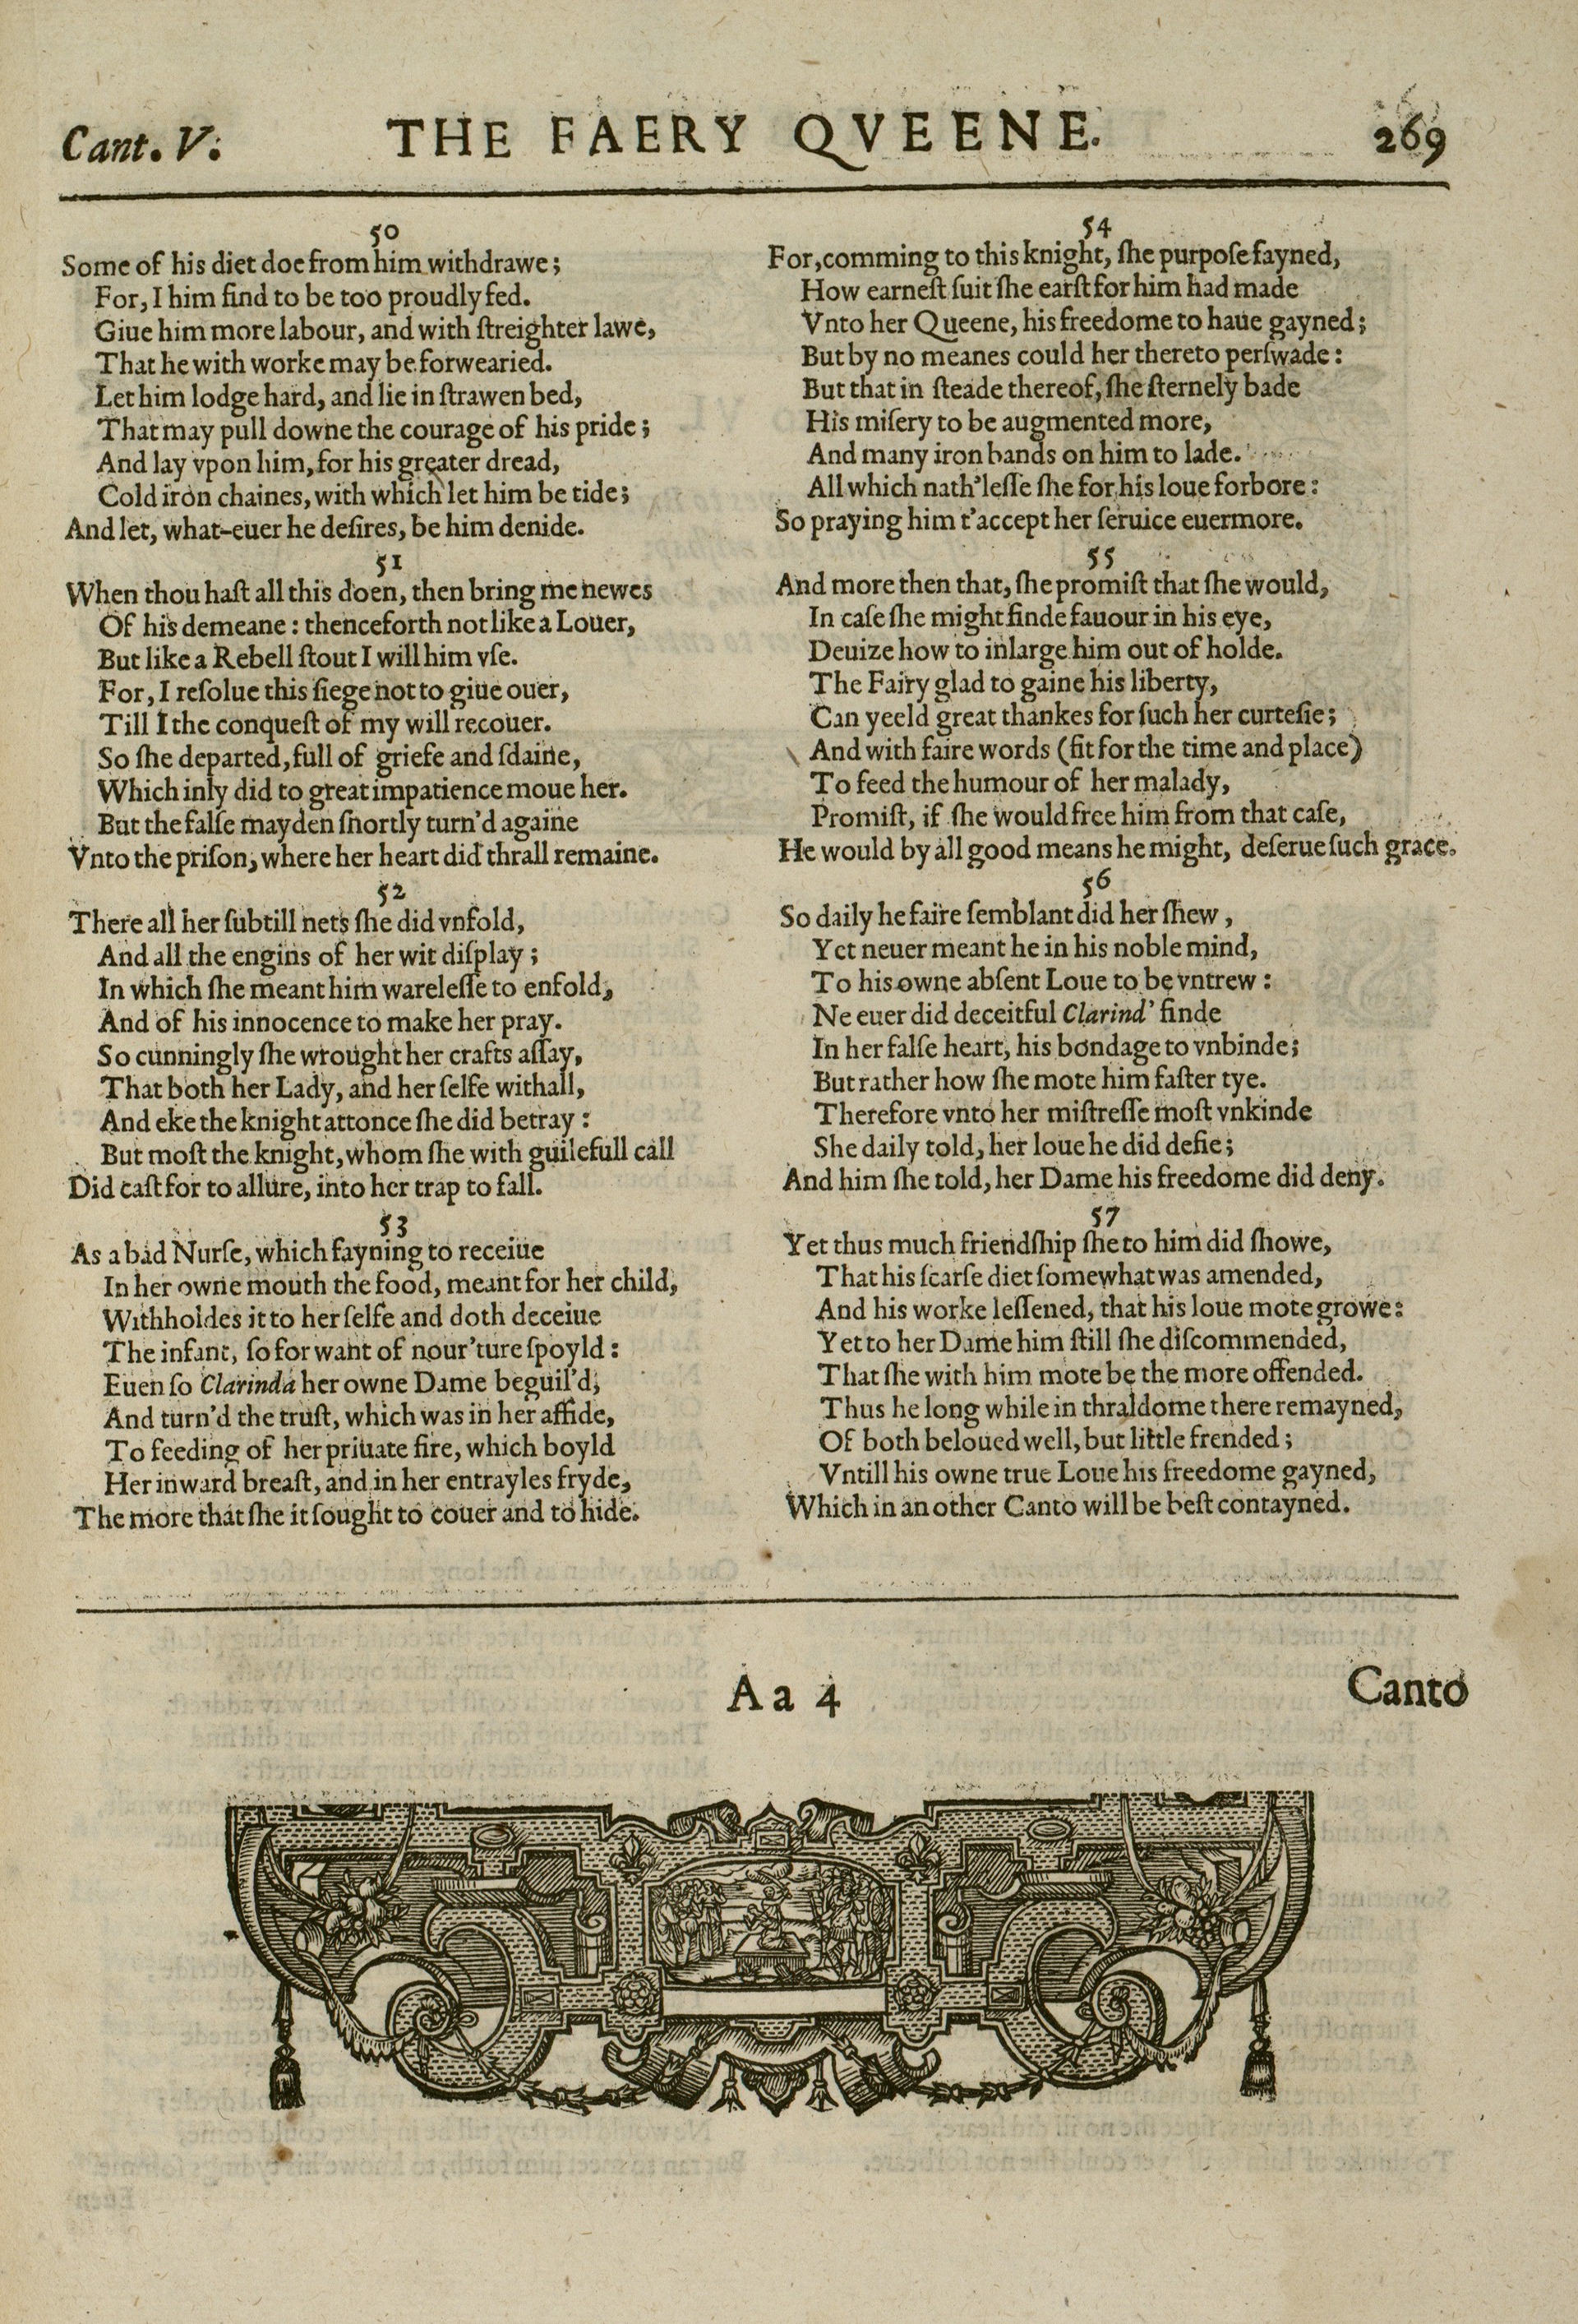 Cant. V. THE FAERY QVEENE. 269
50
Some of his diet doe from him withdrawe;
For, I him find to be too proudly fed.
Giue him more labour, and with ſtreighter lawe,
That he with worke may be forwearied.
Let him lodge hard, and lie in ſtrawen bed,
That may pull downe the courage of his pride;
And lay vpon him, for his greater dread,
Cold iron chaines, with which let him be tide;
And let, what-euer he deſires, be him denide.
51
When thou haſt all this doen, then bring me newes
Of his demeane: thenceforth not like a Louer,
But like a Rebell ſtout I will him vſe.
For, I reſolue this ſiege not to giue ouer,
Till I the conqueſt of my will recouer.
So ſhe departed, full of griefe and ſdaine,
Which inly did to great impatience moue her.
But the falſe mayden ſhortly turn'd againe
Vnto the priſon, where her heart did thrall remaine.
52
There all her ſubtill nets ſhe did vnfold,
And all the engins of her wit diſplay;
In which ſhe meant him wareleſſe to enfold,
And of his innocence to make her pray.
So cunningly ſhe wrought her crafts aſſay,
That both her Lady, and her ſelfe withall,
And eke the knight attonce ſhe did betray:
But moſt the knight, whom ſhe with guilefull call
Did caſt for to allure, into her trap to fall.
53
As a bad Nurſe, which fayning to receiue
In her owne mouth the food, meant for her child,
Withholdes it to her ſelfe and doth deceiue
The infant, ſo for want of nour'ture ſpoyld:
Euen ſo Clarinda her owne Dame beguil'd,
And turn'd the truſt, which was in her affide,
To feeding of her priuate fire, which boyld
Her inward breaſt, and in her entrayles fryde,
The more that ſhe it ſought to couer and to hide.
54
For, comming to this knight, ſhe purpoſe fayned,
How earneſt ſuit ſhe earſt for him had made
Vnto her Queene, his freedome to haue gayned;
But by no meanes could her thereto perſwade:
But that in ſteade thereof, ſhe ſternely bade
His miſery to be augmented more,
And many iron bands on him to lade.
All which nath'leſſe ſhe for his loue forbore:
So praying him t'accept her ſeruice euermore.
55
And more then that, ſhe promiſt that ſhe would,
In caſe ſhe might finde fauour in his eye,
Deuize how to inlarge him out of holde.
The Fairy glad to gaine his liberty,
Can yeeld great thankes for ſuch her curteſie;
And with faire words (fit for the time and place)
To feed the humour of her malady,
Promiſt, if ſhe would free him from that caſe,
He would by all good means he might, deſerue ſuch grace.
56
So daily he faire ſemblant did her ſhew,
Yet neuer meant he in his noble mind,
To his owne abſent Loue to be vntrew:
Ne euer did deceitful Clarind' finde
In her falſe heart, his bondage to vnbinde;
But rather how ſhe mote him faſter tye.
Therefore vnto her miſtreſſe moſt vnkinde
She daily told, her loue he did defie;
And him ſhe told, her Dame his freedome did deny.
57
Yet thus much friendſhip ſhe to him did ſhowe,
That his ſcarſe diet ſomewhat was amended,
And his worke leſſened, that his loue mote growe:
Yet to her Dame him ſtill ſhe diſcommended,
That ſhe with him mote be the more offended.
Thus he long while in thraldome there remayned,
Of both beloued well, but little frended;
Vntill his owne true Loue his freedome gayned,
Which in an other Canto will be beſt contayned.
Aa 4 Canto